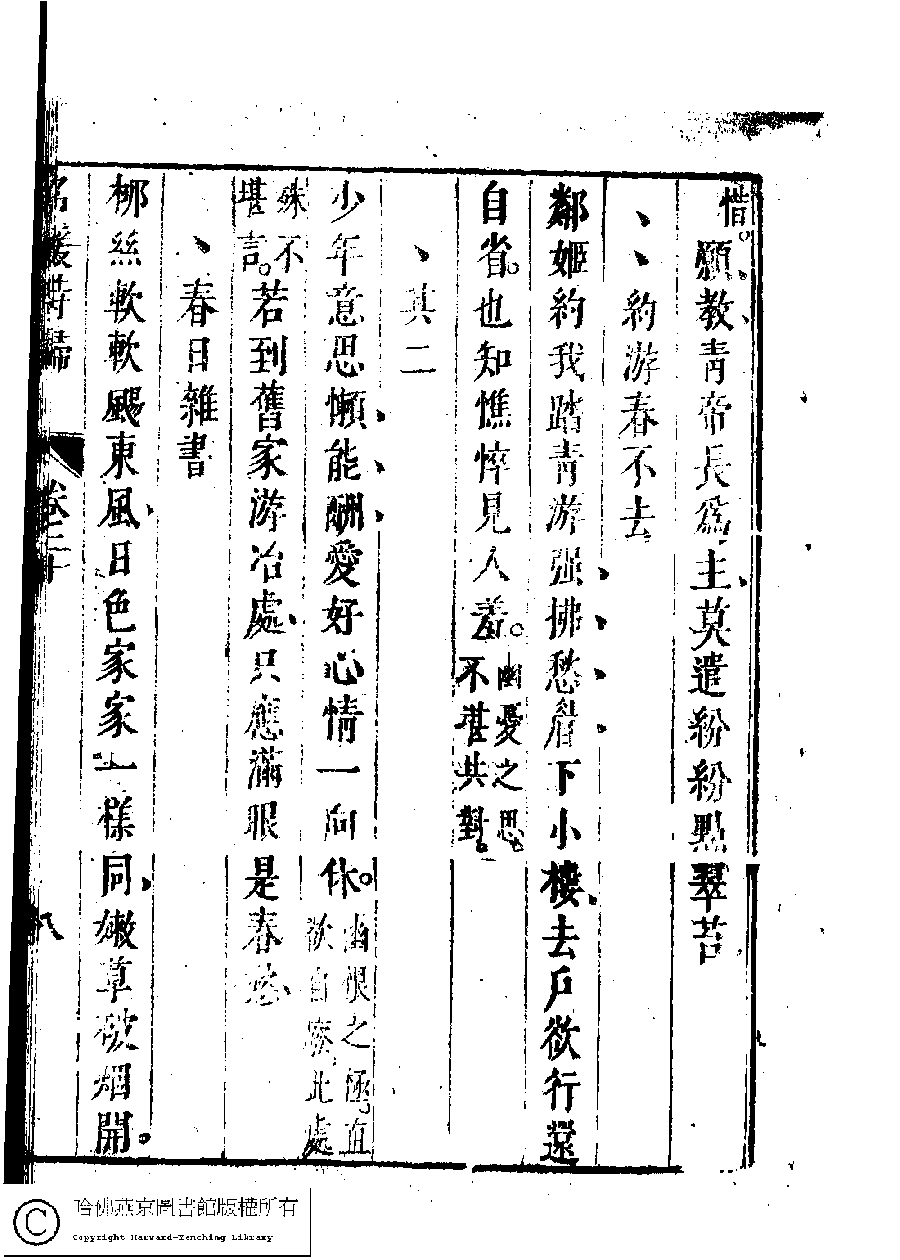 惜。願教青帝長爲主、莫遣紛紛點翠苔
、、約游春不去
鄰姬約我踏青游强拂愁眉下小樓、去戶欲行還
自省。也知憔悴見人羞。幽憂之思。不堪共對。
、其二
少年意思懶能酬愛好心情一向休。幽恨之極直欲自廢、此處
殊不堪言。若到舊家游冶處、只應滿眼是春愁
、春日雜書
栁絲軟軟颺東風、日色家家一樣同、嫩草破烟開。
名媛詩歸
卷二十
八
哈佛燕京圖書館版權所有
Copyright Harvard-Yenching Library